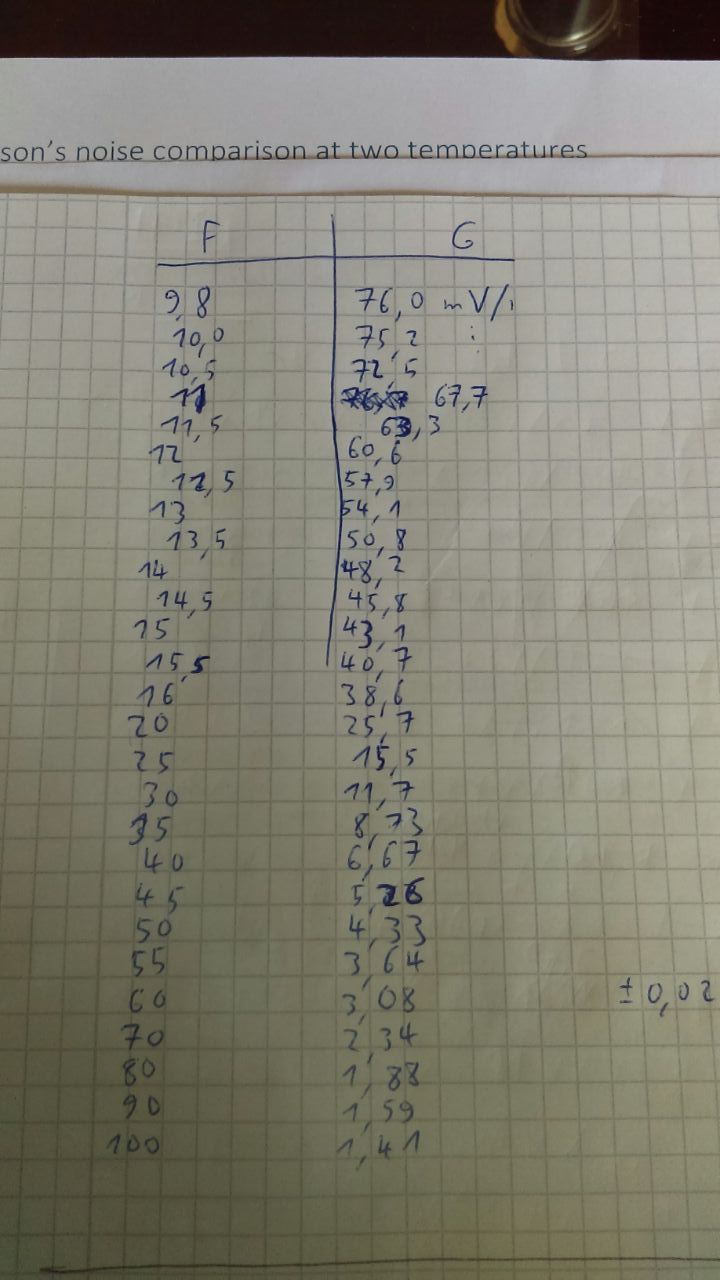 son's noise comparison at two temperatures
F G
9,8 76,0 mV/
10,0 75,2 :
10,5 72,5
11 67,7
11,5 63,3
12 60,6
12,5 57,9
13 54,1
13,5 50,8
14 48,2
14,5 45,8
15 43,1
15,5 40,7
16 38,6
20 25,7
25 15,5
30 11,7
35 8,73
40 6,67
45 5,26
50 4,33
55 3,64
60 3,08 ± 0,02
70 2,34
80 1,88
90 1,59
100 1,41